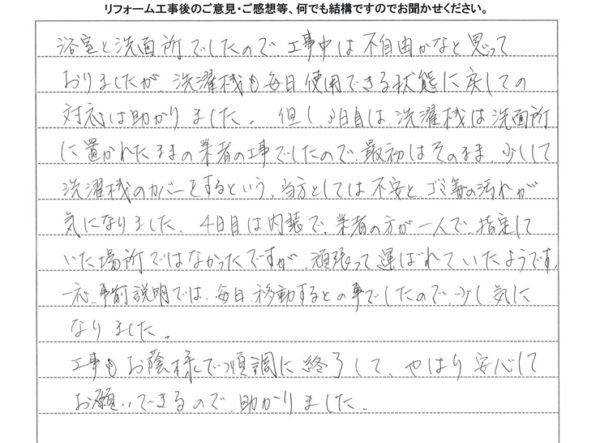 リフォーム工事後のご意見・ご感想等、何でも結構ですのでお聞かせください。
浴室と洗面所でしたので、工事中は不自由かなと思って
おりましたが、洗濯機も毎日使用できる状態に戻しての
対応は助かりました。但し、3日目は、洗濯機は洗面所
に置かれたままの業者の工事でしたので、最初はそのまま、少しして
洗濯機のカバーをするという、当方としては不安と、ゴミ等の汚れが
気になりました。4日目は内装で、業者の方が一人で、指定して
いた場所ではなかったですが、頑張って運ばれていたようです。
一応、事前説明では、毎日、移動するとの事でしたので、少し気に
なりました。
工事もお陰様で順調に終了して、やはり安心して
お願いできるので、助かりました。